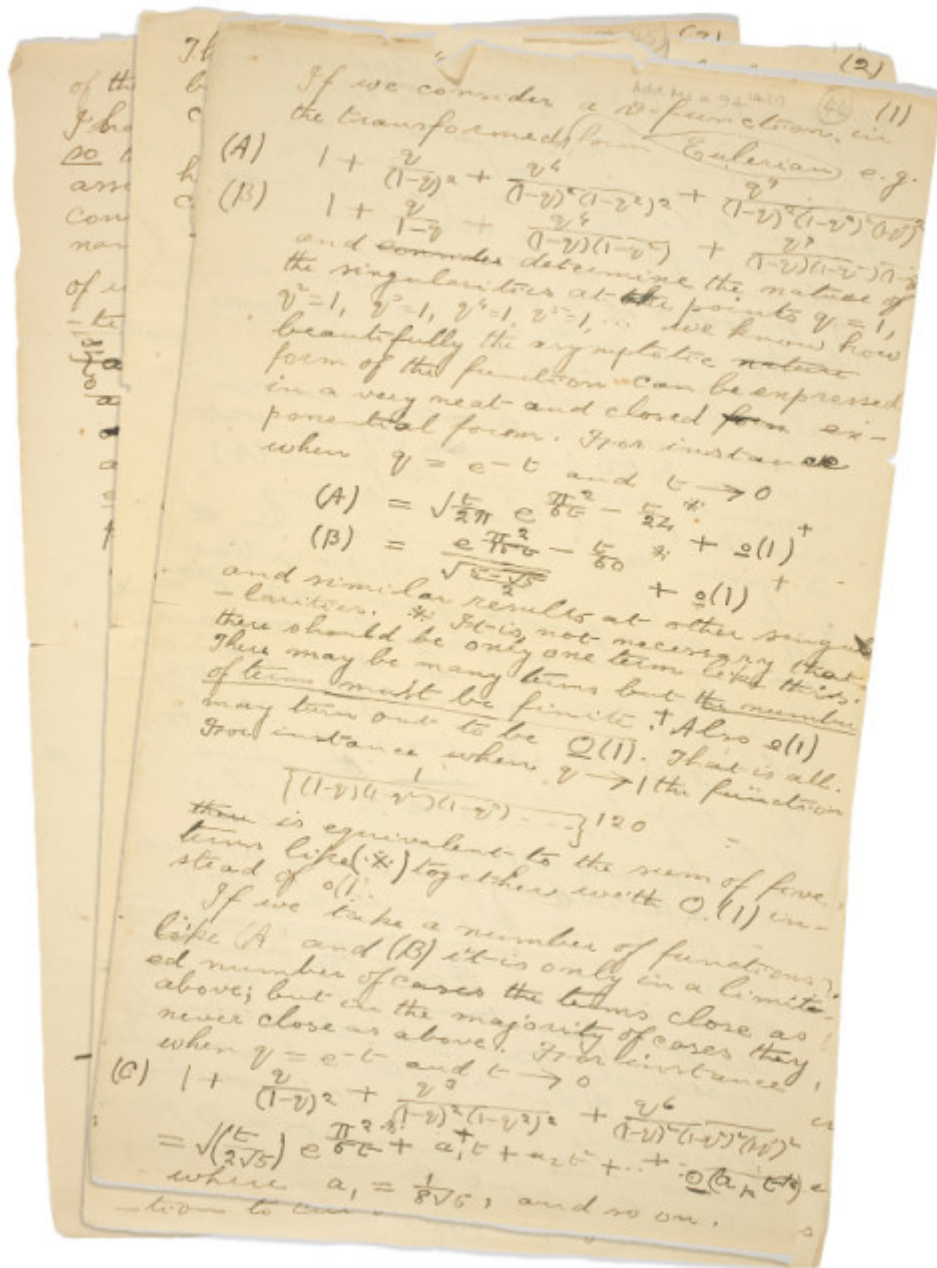 (2)
(1)
44
Th
of the
b
I ha
so t
ass
con
nar
of u
If we consider a ϑ-function in
the transformed form Eulerian e.g.
(A) 1 + q/(1-q)² + q⁴/(1-q)²(1-q²)² + q⁹/(1-q)²(1-q²)²(1-q³)²
(B) 1 + q/1-q + q⁴/(1-q)(1-q²) + q⁹/(1-q)(1-q²)(1-q
and consider determine the nature of
the singularities at the points q = 1,
q²=1, q³=1, q⁴=1, q⁵=1, ... we know how
beautifully the asymptotic nature
form of the function can be expressed
in a very neat and closed form ex-
ponential form. For instance
when q = e^-t and t → 0
(A) = √t/2π e^π²/6t - t/24 * + o(1) +
(B) = e^π²/15t - t/60 * / √5-√5/2 + o(1) +
and similar results at other singu
-larities. * It is not necessary that
there should be only one term like this.
There may be many terms but the number
of terms must be finite. + Also o(1)
may turn out to be O(1). That is all.
For instance when q → 1 the function
{1/(1-q)(1-q²)(1-q³) ...}120
is equivalent to the sum of five
terms like (*) together with O(1) in-
stead of o(1).
If we take a number of functions
like (A) and (B) it is only in a limit-
ed number of cases the terms close as
above; but in the majority of cases they
never close as above. For instance
when q = e^-t and t → 0
(C) 1 + q/(1-q)² + q³/(1-q)²(1-q²)² + q⁶/(1-q)²(1-q²)²(1-q³)²
= √(t/2π√5) e^π²/5t + a₁t + a₂t² + ... + O(aₖtᵏ)
where a₁ = 1/8√5, and so on.